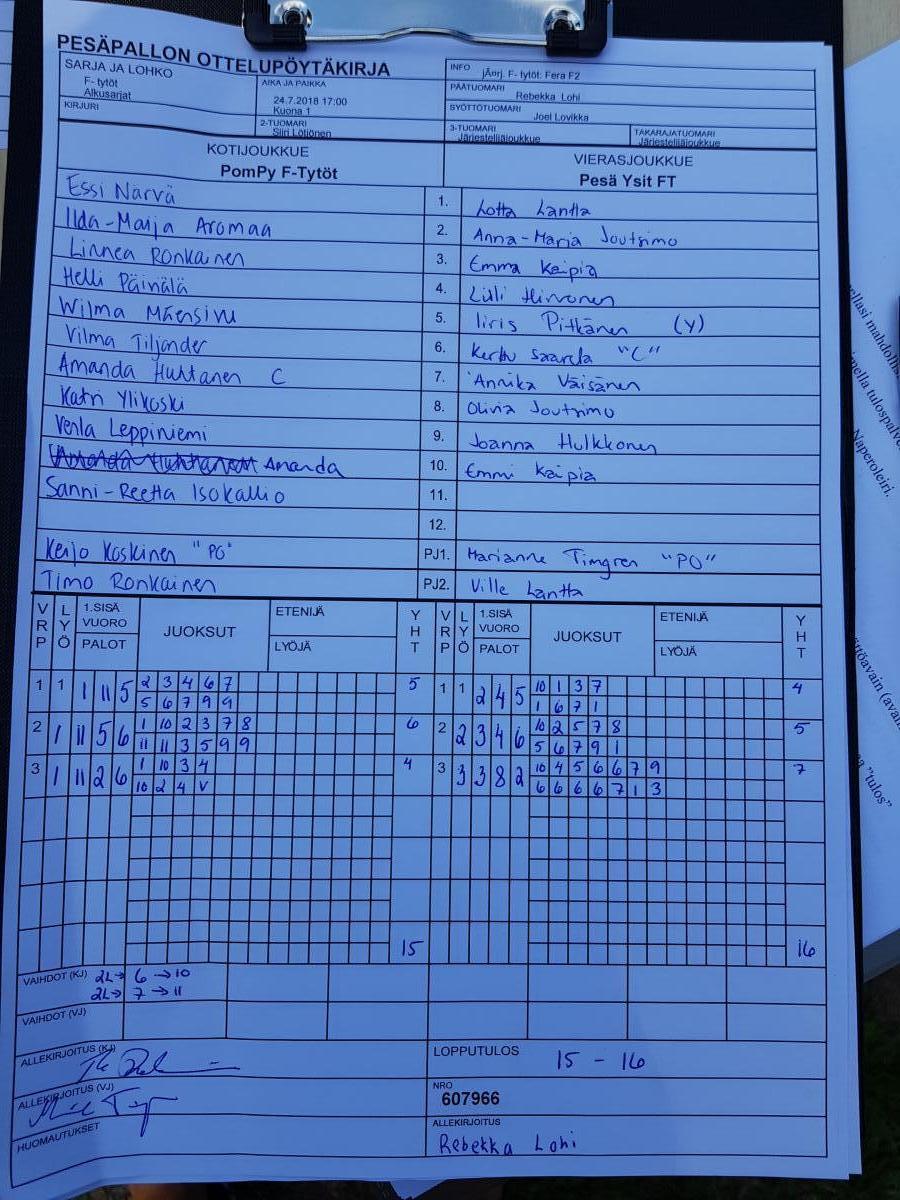 PESÄPALLON OTTELUPÖYTÄKIRJA
SARJA JA LOHKO
F- tytöt
Alkusarjat
KIRJURI
AIKA JA PAIKKA
24.7.2018 17:00
Kuona 1
2-TUOMARI
Siiri Lötjönen
INFO jÄorj. F- tytöt: Fera F2
PÄÄTUOMARI Rebekka Lohi
SYÖTTÖTUOMARI Joel Lovikka
3-TUOMARI
Järjestelijäjoukkue
TAKARAJATUOMARI
Järjestelijäjoukkue
KOTIJOUKKUE
PomPy F-Tytöt
VIERASJOUKKUE
Pesä Ysit FT
Essi Närvä 1. Lotta Lantta
Ilda-Marja Aromaa 2. Anna-Marja Joutsimo
Linnea Ronkainen 3. Emma Kaipia
Helli Päinälä 4. Lilli Hirvonen
Wilma Mäensivu 5. Iiris Pitkänen (Y)
Vilma Tiljander 6. Kerttu Saarela "C"
Amanda Huhtanen C 7. Annika Väisänen
Katri Ylikoski 8. Olivia Joutsimo
Venla Leppiniemi 9. Joanna Hulkkonen
Amanda 10. Emmi Kaipia
Sanni-Reetta Isokallio 11.
12.
Keijo Koskinen "PO" PJ1. Marianne Timgren "PO"
Timo Ronkainen PJ2. Ville Lantta
VRP LYÖ 1.SISÄ VUORO PALOT JUOKSUT ETENIJÄ LYÖJÄ YHT VRP LYÖ 1.SISÄ VUORO PALOT JUOKSUT ETENIJÄ LYÖJÄ YHT
1 1 1 11 5 2 3 4 6 7 5 1 1 2 4 5 10 1 3 7 4
5 6 7 9 9 1 6 7 1
2 1 11 5 6 1 10 2 3 7 8 6 2 2 3 4 6 10 2 5 7 8 5
11 11 3 5 9 9 5 6 7 9 1
3 1 11 2 6 1 10 3 4 4 3 3 3 8 2 10 4 5 6 6 7 9 7
10 2 4 V 6 6 6 6 7 1 3
15 16
VAIHDOT (KJ) 2L→ 6 →10
2L→ 7 →11
VAIHDOT (VJ)
ALLEKIRJOITUS (KJ)
LOPPUTULOS 15 - 16
ALLEKIRJOITUS (VJ)
NRO
607966
HUOMAUTUKSET
ALLEKIRJOITUS
Rebekka Lohi